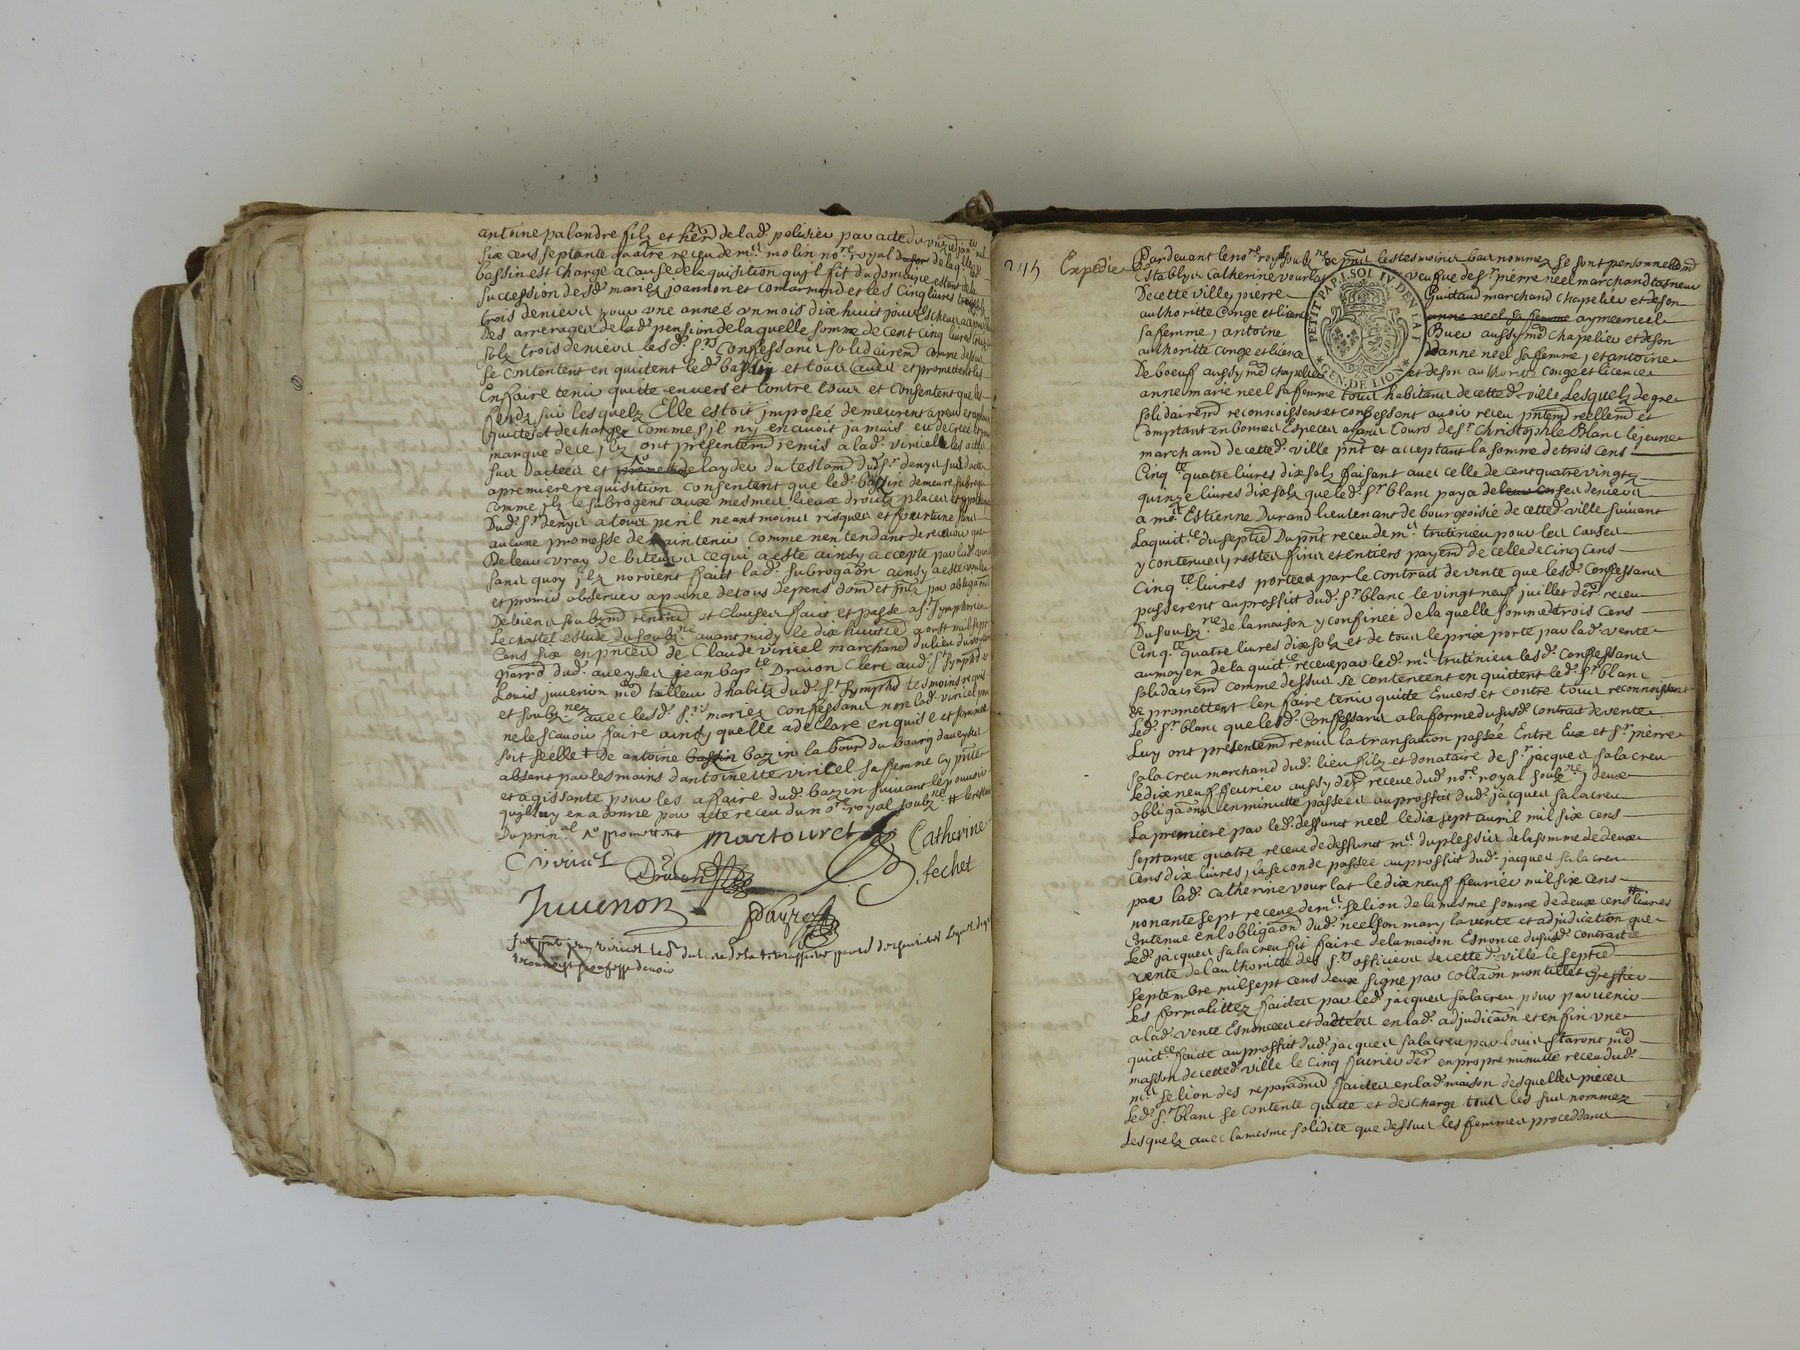 antoine palandre filz et her̄ de lad. polisieu par acte du unze
six cens septante quatre receu de mᵉ molin noʳᵉ royal de laq.lle led.
bassin est chargé a cause de laquisition quil fit du domaine estant de la
succession desd. mariez joannon et comarmond et les cinq livres
trois deniers pour une année un mois dix huict jours
des arrerages de lad. pension de laquelle somme de cent cinq livres
solz trois deniers lesd. sʳˢ confessans solidairem̄ comme dessus
se contentent en quittent led. bassin et tous autres et promettent les
En faire tenir quitte envers et contre tous et consentent que les
fondz sur lesquelz Elle estoit jmposée demeurent
quittes et dechargez comme sil ny en avoit jamais eu
marque de ce jlz ont presentem̄ remis a lad. viricelle les actes
sus dattées et promettent de layder du testam̄ dud. sʳ denyis sus datté
a premiere requisition consentent que led. bassin demeure subrogé
comme jlz le subrogent aux mesmes lieux droitz places et ypotheques
Dud. sʳ denyis a tous peril neantmoins risques et fourtune sans
aucune promesse de maintenir comme nentendant de recevoir que
De leur vray debiteur ce qui a este ainsy accepté par lad.
sans quoy jlz nauroient fait lad. subroga͠on ainsy a esté voulu
et promis observer a paine de tous depens dom̄ et jn̄tz par obligā͠on
De biens soubzm̄ renonc̄ et clauses fait et passé a sᵗ symphorien
le chastel estude du soubz.ⁿᵉ avant midy le dix huitie͠ aoust mil sept
Cens six en pn̄ce de Claude viricel marchand du lieu du
parr̄ dud. aveyses jean bap.ᵗᵉ Drivon clerc aud. sᵗ symph̄
Louis juvenon m̄d tailleur dhabitz dud. sᵗ symph̄ tesmoins requis
et soubz.ⁿᵉᶻ avec lesd. sʳˢ mariez confessans non lad. viricel pour
ne le scavoir faire ainsy quelle a declaré enquise et sommée
soit scellé ‡ de antoine bassin bazin labour̄ du bourg daveyses
absent par les mains dantoinette viricel sa femme cy pn̄te
et agissante pour les affaire dud. bazin suivant le pouvoir
quil luy en a donné par acte receu du noʳᵉ royal soubz.ⁿᵉ
Du prin.ᵃˡ promettent
Martouret
Catherine
fechet
C viricel
Drivon
Juvenon
Expedié
Pardevant le noʳᵉ royal soubz.ⁿᵉ et pn̄s les tesmoins bas nommez se sont personnellem̄
Establys Catherine vourlat veufve de sʳ pierre neel marchand taneur
De cette ville, pierre Guittaud marchand chapelier et de son
authoritte congé et licence anne neel sa femme aymée neel
sa femme, antoine Buer aussy m̄d chapelier et de son
authoritte congé et licence danne neel sa femme, et antoine
De boeuf aussy m̄d chapelier et de son authoritté congé et licence
anne marie neel sa femme tous habitans de cetted. ville Lesquelz de gre
solidairem̄ reconnoissent et confessent avoir receu pn̄tem̄ reellem̄ et
Comptant en bonnes Especes ayans Cours de sʳ Christophle Blanc le jeune
marchand de cetted. ville pn̄t et acceptant la somme de trois cens
Cinq.ᵗᵉ quatre livres dix solz faisant avec celle de cent quatre vingtz
quinze livres dix solz que led. sʳ blanc paya de leur ses deniers
a moʳ. Estienne Durand lieutenant de bourgeoisie de cetted. ville suivant
Laquict.ᶜᵉ du septie͠ du pn̄t receu de mᵉ trutinieu pour les causes
y contenues, restes fins et entiers payem̄ de celle de cinq cens
Cinq.ᵗᵉ livres portées par le contrat de vente que lesd. confessans
passerent au proffict dud. sʳ blanc le vingt neuf juillet der͠. receu
Du soubz.ⁿᵉ de la maison y confinée de laquelle somme de trois cens
Cinq.ᵗᵉ quatre livres dix solz et de tous le prix porté par lad. vente
au moyen de la quict.ᶜᵉ receue par led. mᵉ trutinieu lesd. confessans
solidairem̄ comme dessus se contentent en quittent led. sʳ blanc
et promettent len faire tenir quitte Envers et contre tous reconnoissant
led. sʳ blanc que lesd. confessans a la forme dusd. contrat de vente
Luy ont presentem̄ remis la transaction passée Entre Eux et sʳ pierre
salacreu marchand dud. lieu filz et donataire de sʳ jacques salacreu
le dix neuf fevrier aussy der͠ receue dud. noʳᵉ royal soubz.ⁿᵉ, deux
obliga͠ons en minutte passées au proffict dud. jacques salacreu
La premiere par led. deffunct neel le dix sept avril mil six cens
septante quatre receue de deffunct mᵉ duplessis de la somme de deux
Cens dix livres, la seconde passée au proffict dud. jacques salacreu
par lad. Catherine vourlat le dix neuf fevrier mil six cens
nonante sept receue de mᵉ selion de la mesme somme de deux cens livres
Contenue en lobliga͠on dud. neel son mary la vente et adjudication que
led. jacques salacreu fit faire de la maison Enoncé dusd. contract de
vente de lauthoritté des sʳˢ officiers de cetted. ville le septie͠
septembre mil sept cens deux signé par colla͠on montillet greffier
Les formalittez faites par led. jacques salacreu pour parvenir
a lad. vente Enoncées et dattées en lad. adjudica͠on et enfin une
quict.ᶜᵉ faite au proffict dud. jacques salacreu par louis staront m̄d
masson de cetted. ville le cinq fevrier der͠ en propre minutte receu dud.
mᵉ selion des repara͠ons faites en lad. maison desquelles pieces
led. sʳ blanc se contente quitte et descharge tous les sus nommez
Lesquelz avec la mesme solidité que dessus les femmes proceddans
PETIT PAP. 1 SOL IV. DEN. LA F.
GEN. DE LION